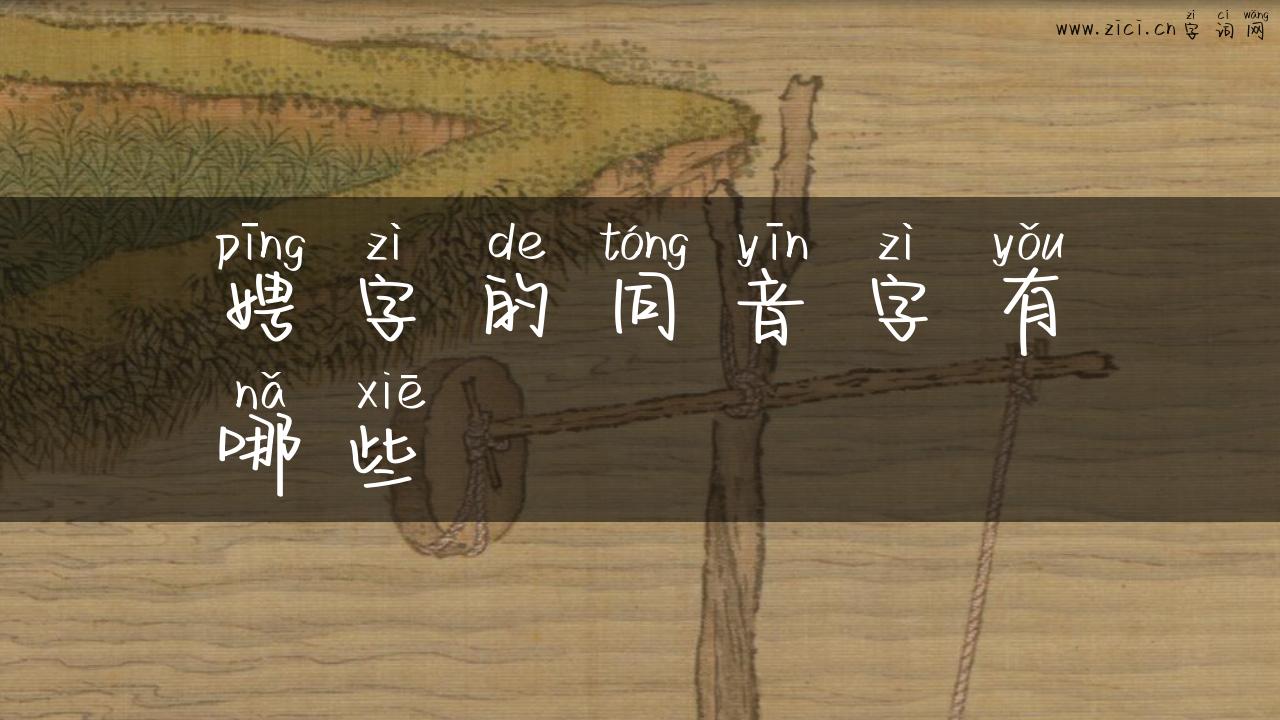 zì cí wǎng
www.zici.cn 字 词 网
pīng zì de tóng yīn zì yǒu
娉 字 的 同 音 字 有
nǎ xiē
哪 些